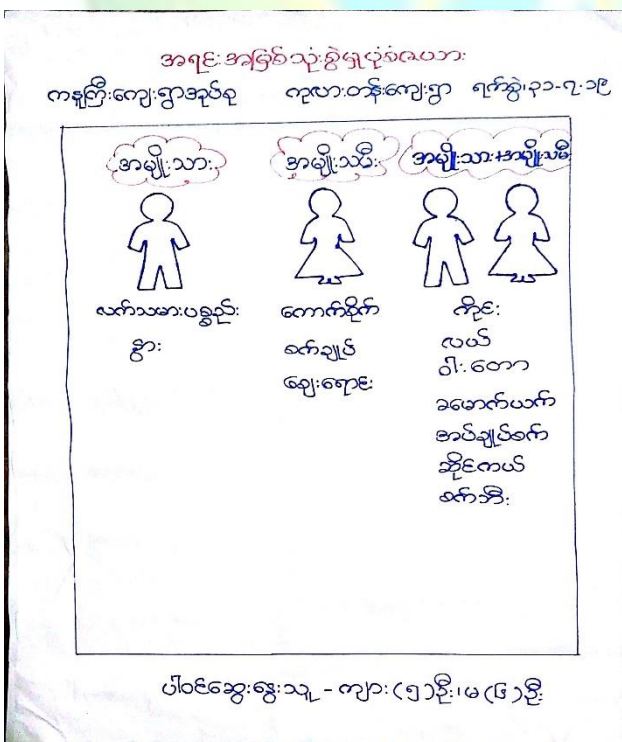 အရင်းအမြစ်သုံးစွဲမှုပုံစံဇယား
ကနူကြီးကျေးရွာအုပ်စု ကုလားတန်းကျေးရွာ ရက်စွဲ၊ ၃၁-၇-၁၉
အမျိုးသား
အမျိုးသမီး
အမျိုးသား+အမျိုးသမီး
လက်သမားပစ္စည်း
နွား
ကောက်စိုက်
စက်ချုပ်
ဈေးရောင်း
ကိုင်း
လယ်
ဝါးတော
ခမောက်ယက်
အပ်ချုပ်စက်
ဆိုင်ကယ်
စက်ဘီး
ပါဝင်ဆွေးနွေးသူ - ကျား (၅) ဦး၊ မ (၆) ဦး